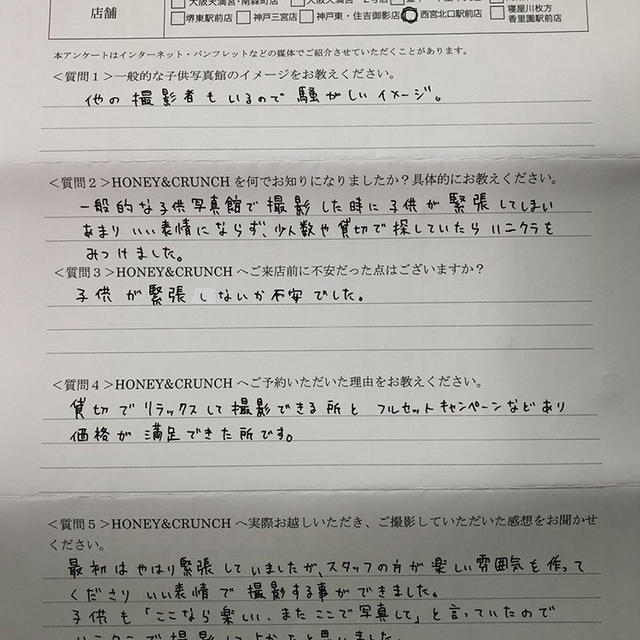 店舗
堺東駅前店 神戸三宮店 神戸東・住吉御影店 西宮北口駅前店 寝屋川枚方
香里園駅前店
本アンケートはインターネット・パンフレットなどの媒体でご紹介させていただくことがあります。
<質問1>一般的な子供写真館のイメージをお教えください。
他の撮影者もいるので騒がしいイメージ。
<質問2>HONEY&CRUNCHを何でお知りになりましたか?具体的にお教えください。
一般的な子供写真館で撮影した時に子供が緊張してしまい
あまりいい表情にならず、少人数や貸切で探していたらハニクラを
みつけました。
<質問3>HONEY&CRUNCHへご来店前に不安だった点はございますか?
子供が緊張しないか不安でした。
<質問4>HONEY&CRUNCHへご予約いただいた理由をお教えください。
貸切でリラックスして撮影できる所とフルセットキャンペーンなどあり
価格が満足できた所です。
<質問5>HONEY&CRUNCHへ実際お越しいただき、ご撮影していただいた感想をお聞かせ
ください。
最初はやはり緊張していましたが、スタッフの方が楽しい雰囲気を作って
くださりいい表情で撮影する事ができました。
子供も「ここなら楽しい、またここで写真して」と言っていたので